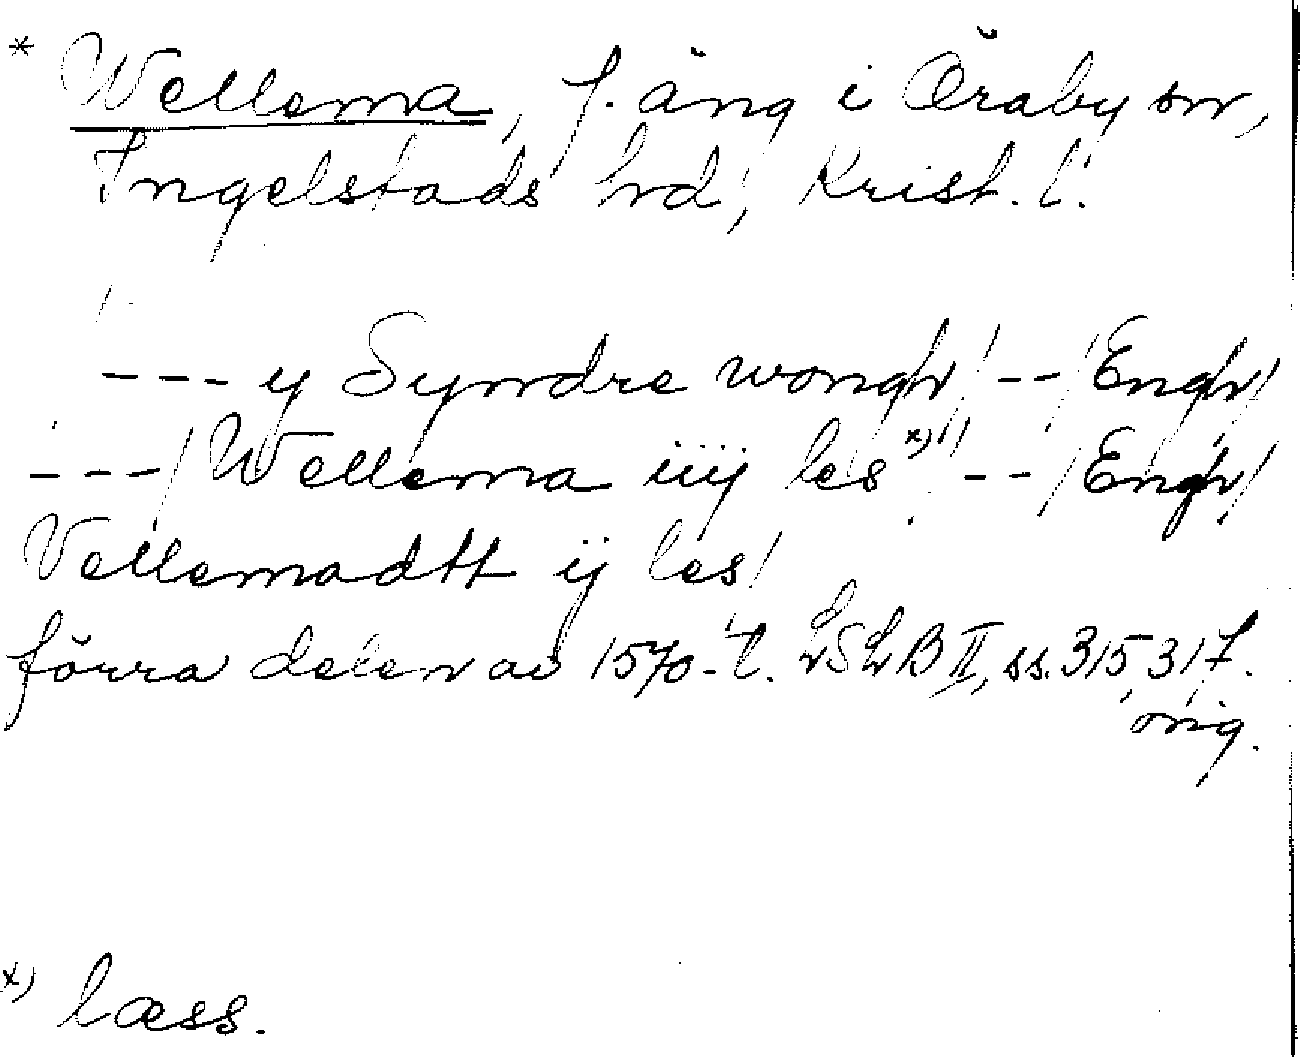 * Wellema, f. äng i Öraby sn,
Ingelstads hd, Krist. l.
--- y Syndre wongh/ --/ Engh/
---/ Wellema iiij les x)/ --/ Engh/
Vellemadtt ij les/
förra delen av 1570-t. LSLB II, ss. 315, 317.
orig.
x) læss.